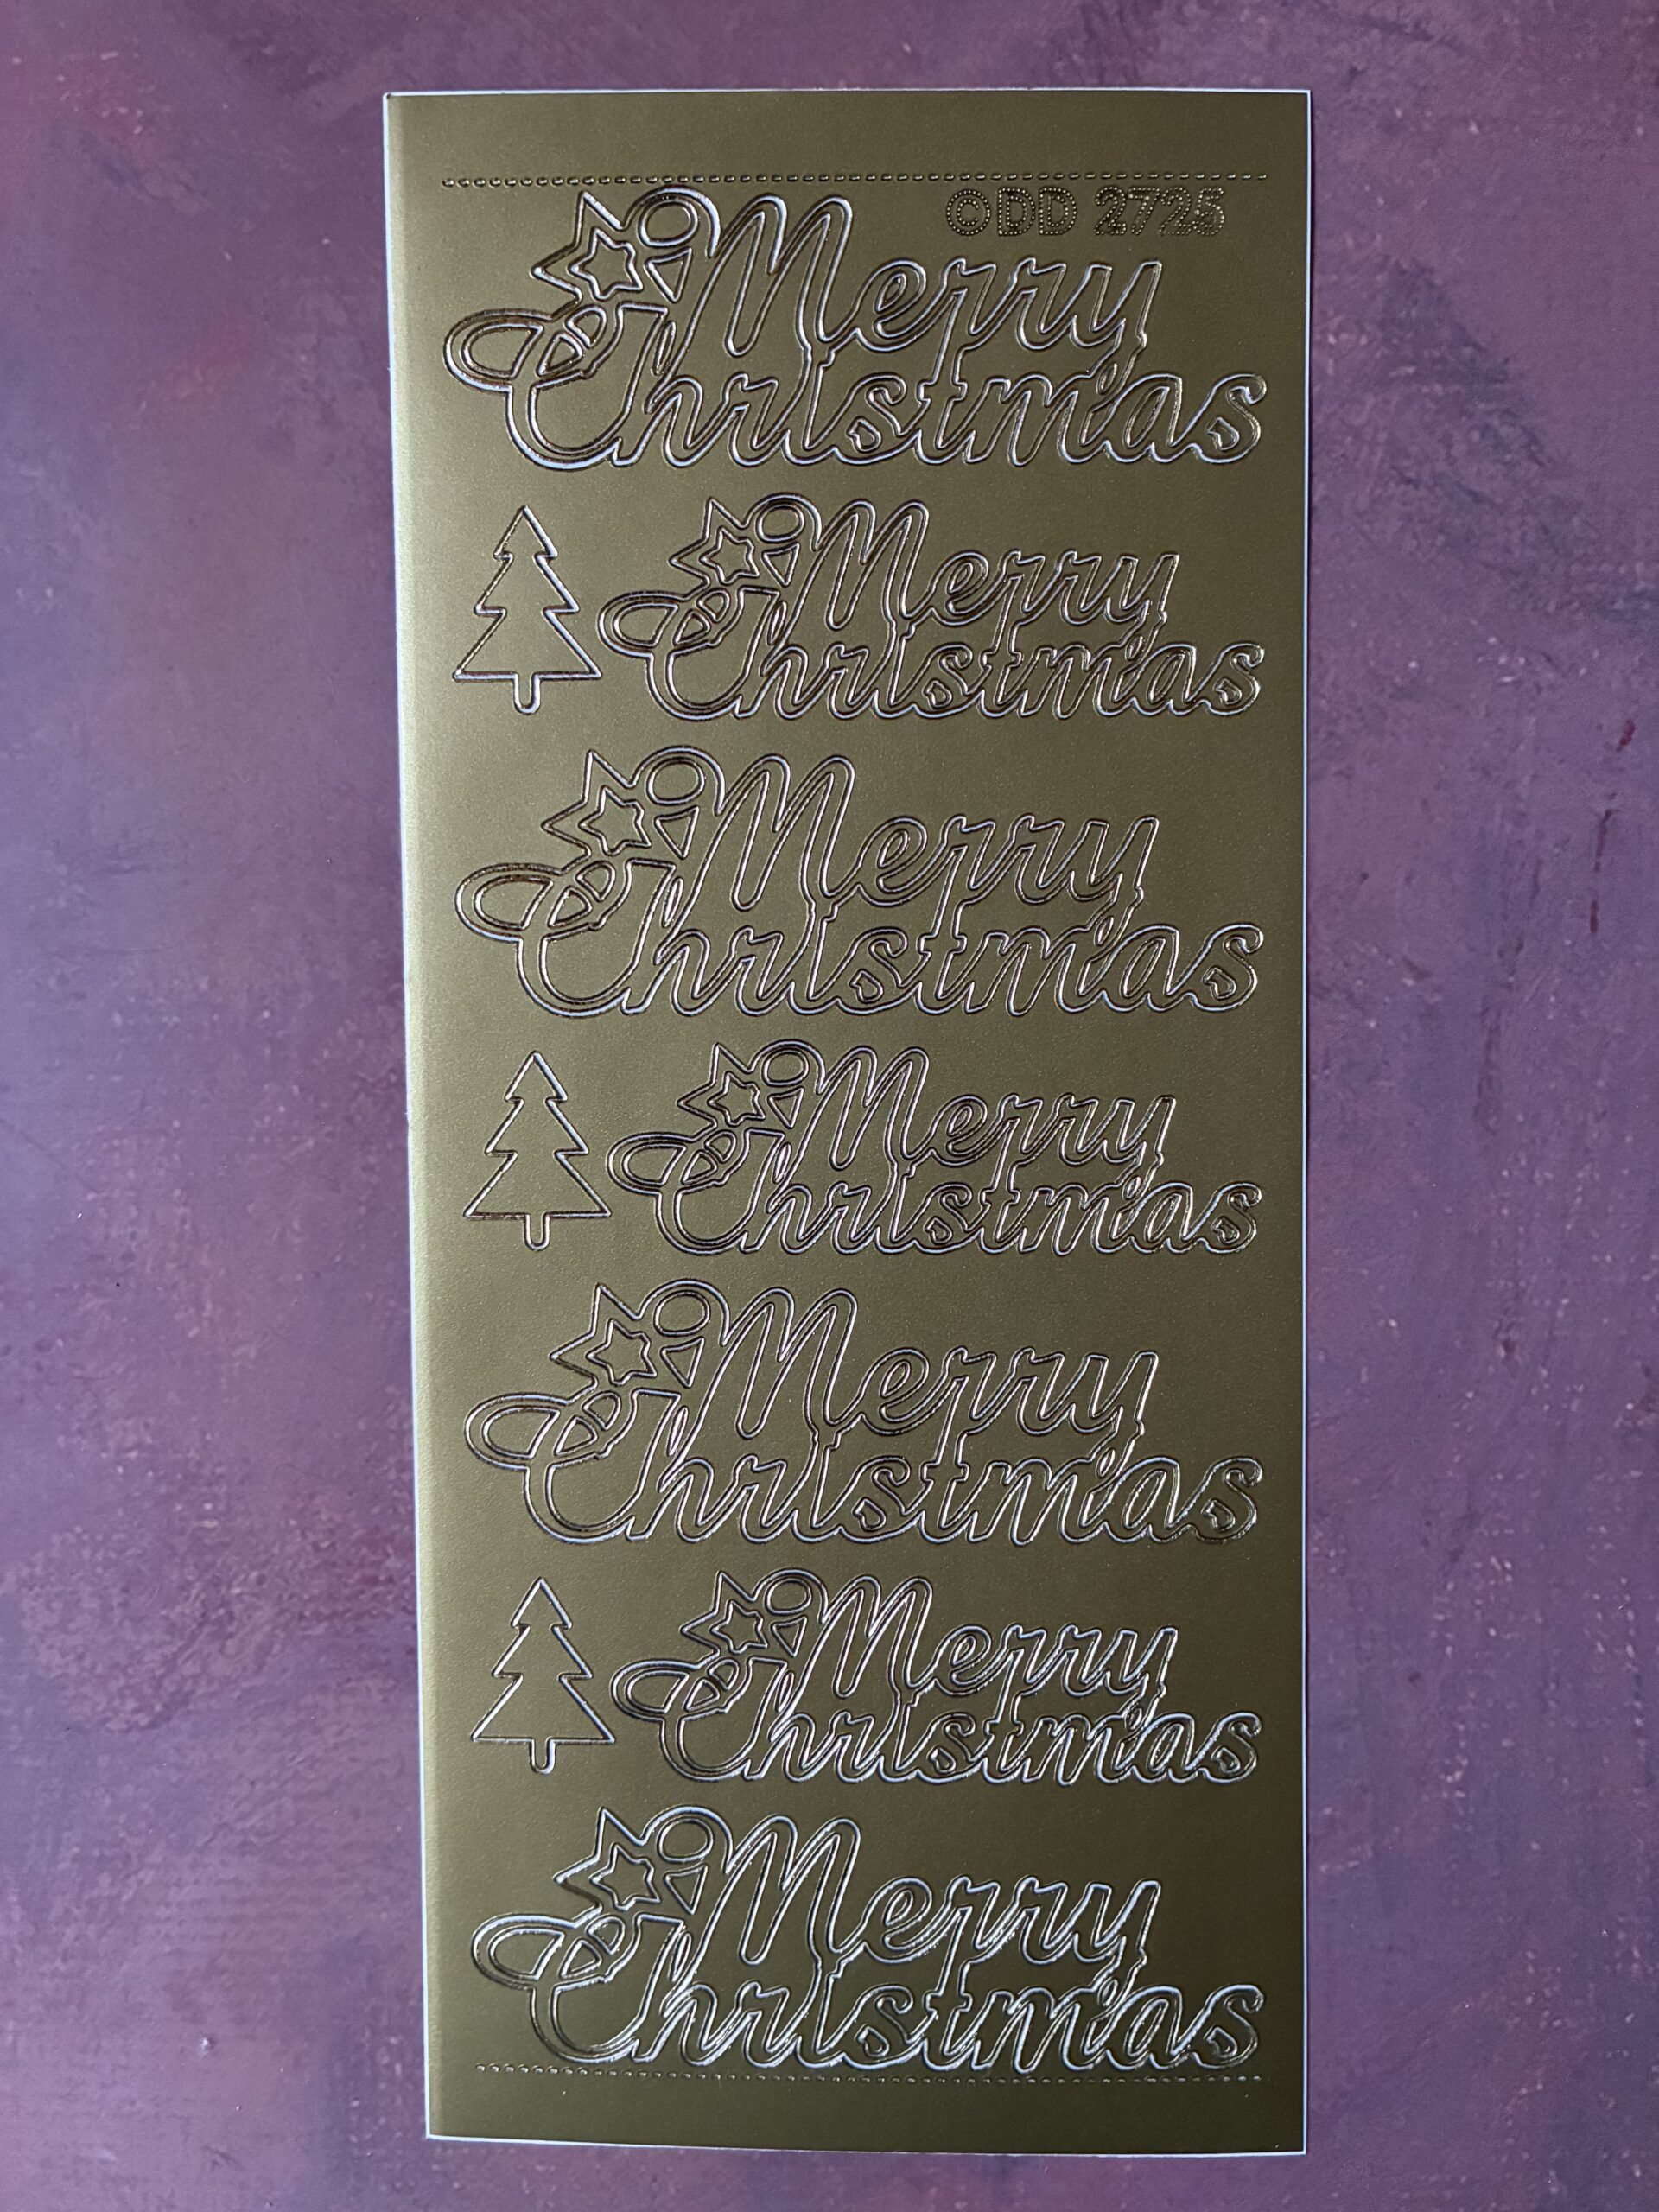 ©DD 2725
Merry
Christmas
Merry
Christmas
Merry
Christmas
Merry
Christmas
Merry
Christmas
Merry
Christmas
Merry
Christmas